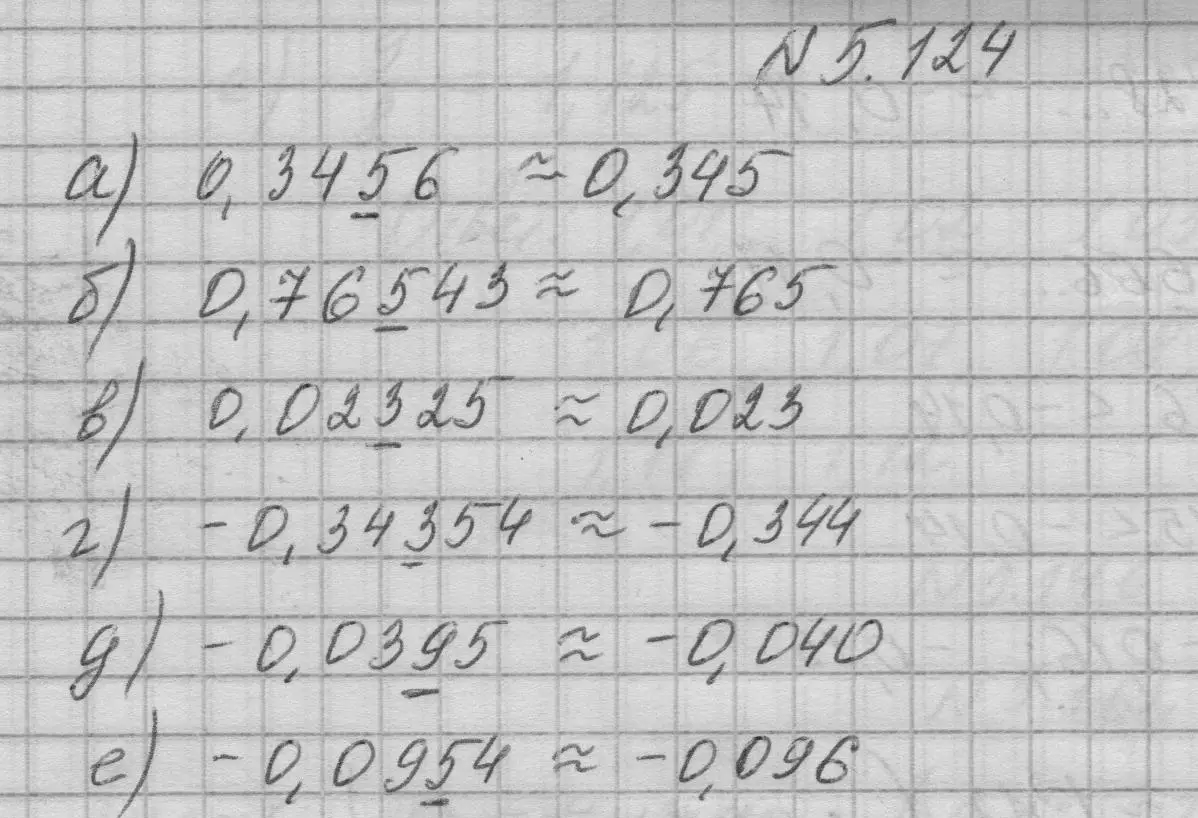 N 5.124
а) 0,3456 ≈ 0,345
б) 0,76543 ≈ 0,765
в) 0,02325 ≈ 0,023
г) -0,34354 ≈ -0,344
д) -0,0395 ≈ -0,040
е) -0,0954 ≈ -0,096